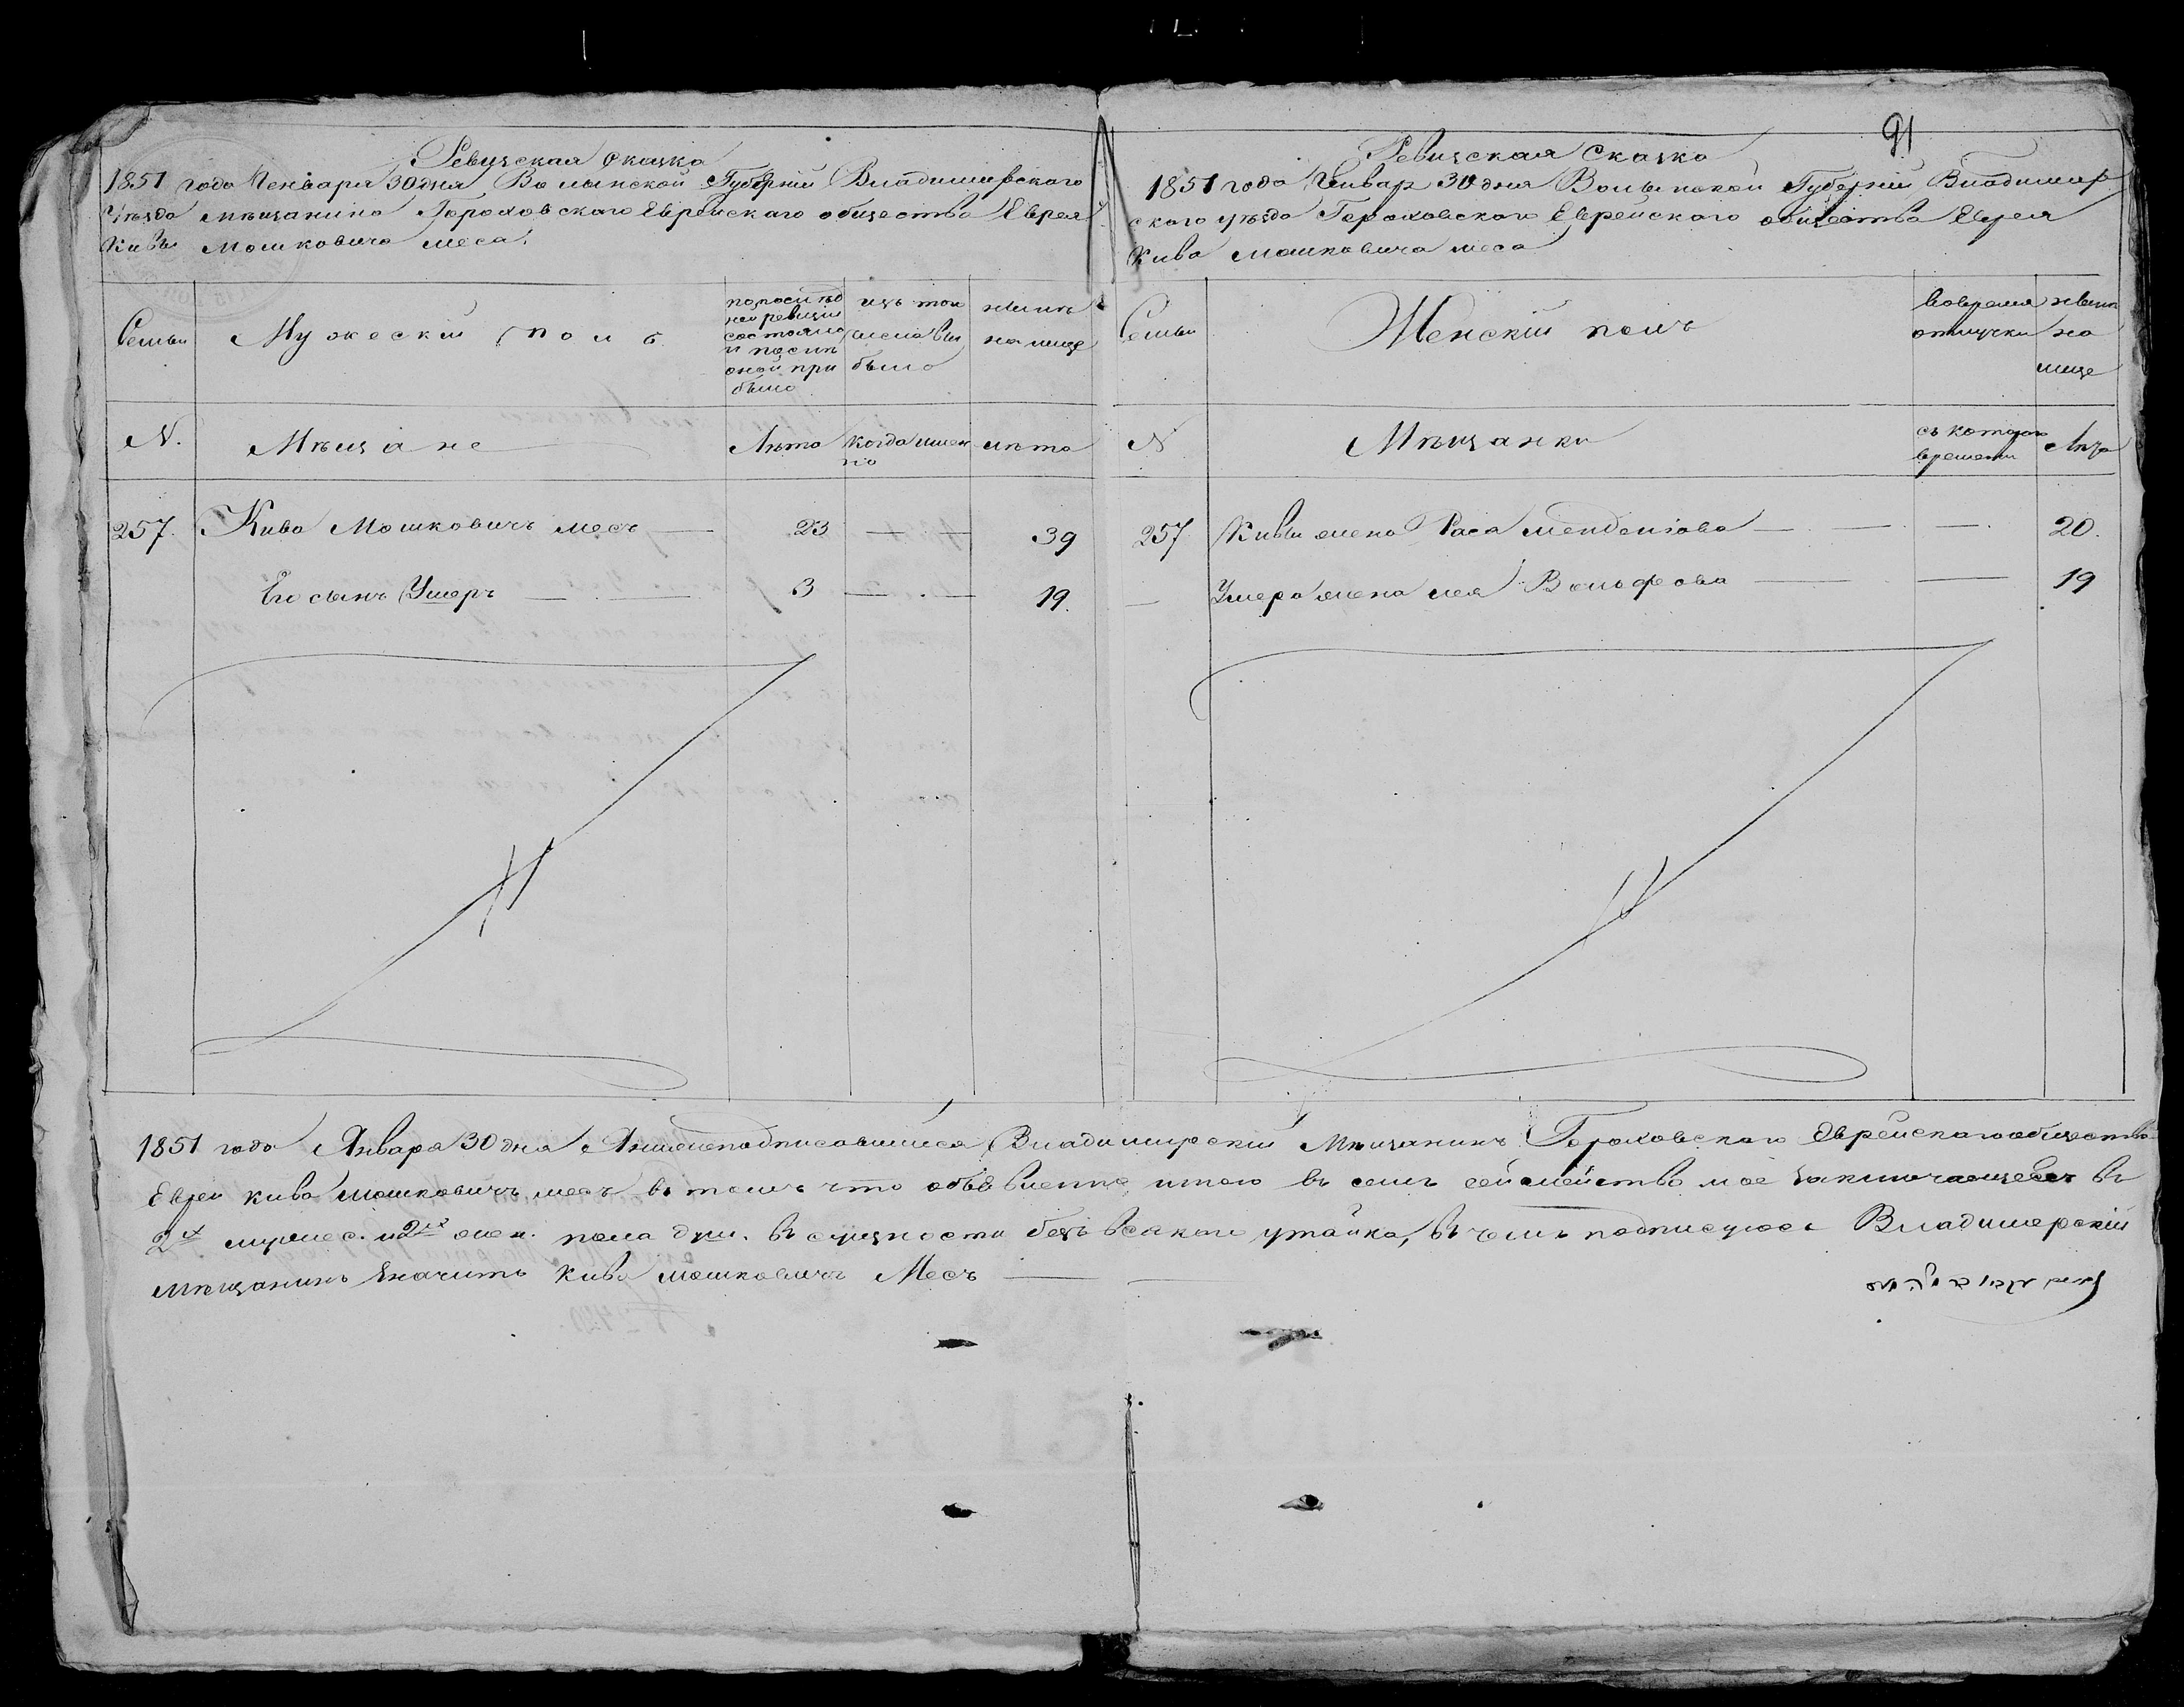 91
Ревизская сказка
1851 года Генваря 30 дня Волынской Губерній Владимирского
Уѣзда мѣщанина Гороховского Еврейского общества Еврея
Кивы Мошковича меса.
Семьи
Мужескій полъ
по послѣд
ней ревизіи
состояло
и послѣ
оной при
было
изъ того
числа вы
было
нынѣ
на лице
N.
Мѣщане
Лѣта
когда имен
но
лѣта
257. Кива Мошковичъ месъ — 23 — — 39
Его сынъ Умеръ — — 3 — . — 19.
Ревизская Сказка
1851 года Генвар 30 дня Волынской Губерніи Владимир
ского уѣзда Гороховского Еврейского общества Еврея
Кива мошковича меса
Семьи
Женскій полъ
во время
отлучки
нынѣ
на
лице
N
Мѣщанки
съ котораго
времени
Лѣта
257 Кивы жена Раса менделова — — — 20.
— Умера жена лея Вольфова — — 19
1851 года Января 30 дня Я нижеподписавшійся Владимирскій Мѣщанинъ Гороховского Еврейского общества
Еврей кива мошковичъ месъ въ томъ что объявленно мною въ семъ семействѣ мое заключающееся въ
2х мужес. и 2хъ жен. пола душ. въ сущности безъ всякой утайка, въ чемъ подписуюсь Владимерскій
мѣщанинъ значитъ Кива мошковичъ Месъ —